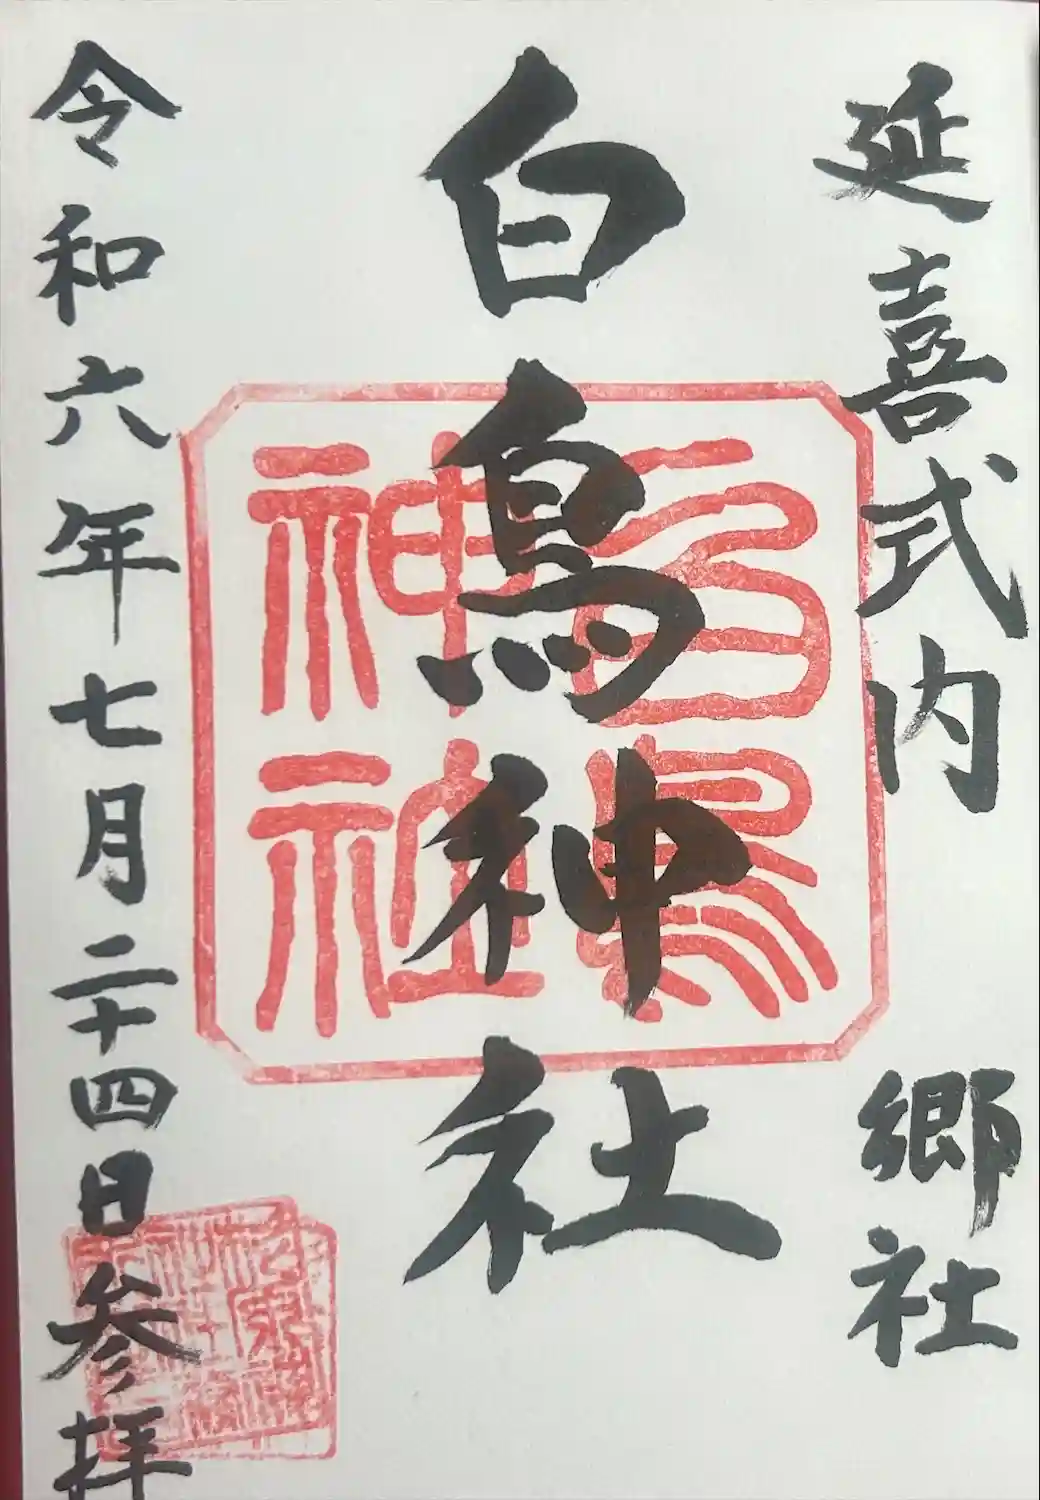 延喜式内 郷社
白鳥神社
白鳥
神社
令和六年七月二十四日参拝